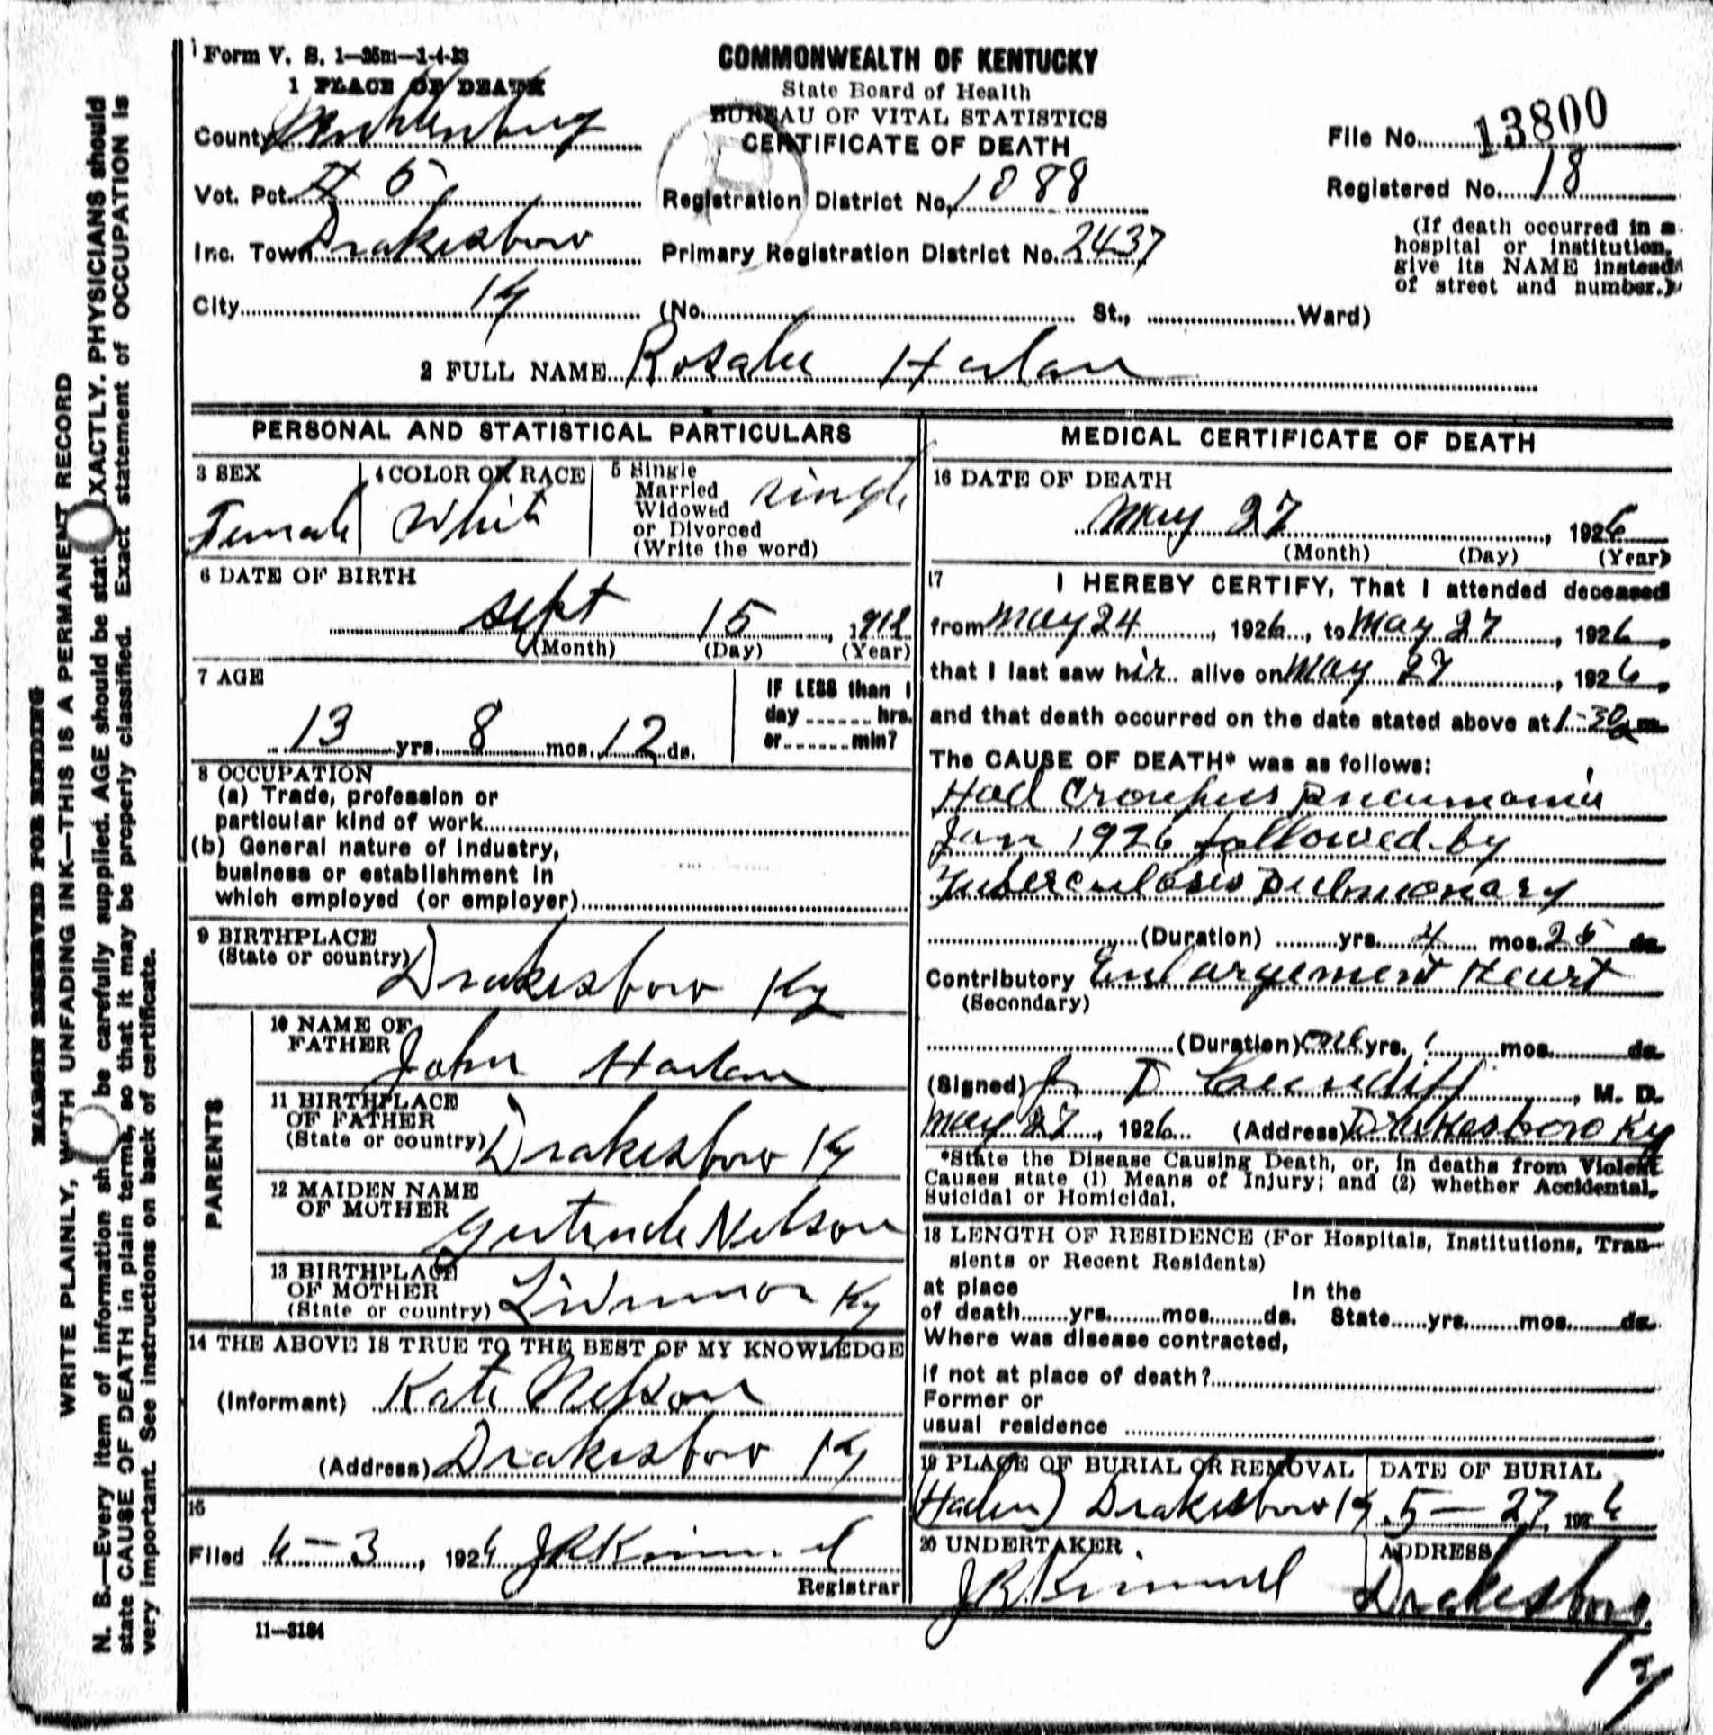 Form V. S. 1—35m—1-4-23
COMMONWEALTH OF KENTUCKY
State Board of Health
BUREAU OF VITAL STATISTICS
CERTIFICATE OF DEATH
1 PLACE OF DEATH
County Muhlenburg
Vot. Pct. # 5
Inc. Town Drakesboro
City Ky (No. St., Ward)
Registration District No. 1088
Primary Registration District No. 2437
File No. 13800
Registered No. 18
(If death occurred in a
hospital or institution,
give its NAME instead
of street and number.)
2 FULL NAME Rosalee Harlan
PERSONAL AND STATISTICAL PARTICULARS
3 SEX
Female
4 COLOR OR RACE
White
5 Single
Married
Widowed
or Divorced
(Write the word)
single
6 DATE OF BIRTH
Sept 15, 1912
(Month) (Day) (Year)
7 AGE
13 yrs. 8 mos. 12 ds.
IF LESS than 1
day ...... hrs.
or ...... min?
8 OCCUPATION
(a) Trade, profession or
particular kind of work
(b) General nature of industry,
business or establishment in
which employed (or employer)
9 BIRTHPLACE
(State or country)
Drakesboro Ky
PARENTS
10 NAME OF
FATHER
John Harlan
11 BIRTHPLACE
OF FATHER
(State or country)
Drakesboro Ky
12 MAIDEN NAME
OF MOTHER
Gertrude Nelson
13 BIRTHPLACE
OF MOTHER
(State or country)
Ky
14 THE ABOVE IS TRUE TO THE BEST OF MY KNOWLEDGE
(Informant) Kate Nelson
(Address) Drakesboro Ky
15
Filed 6-3, 1926 J R Kimmel
Registrar
11—3184
MEDICAL CERTIFICATE OF DEATH
16 DATE OF DEATH
May 27, 1926
(Month) (Day) (Year)
17 I HEREBY CERTIFY, That I attended deceased
from May 24, 1926, to May 27, 1926,
that I last saw her alive on May 27, 1926,
and that death occurred on the date stated above at 1-30 a m.
The CAUSE OF DEATH* was as follows:
Had Croupus Pneumonia
Jan 1926 followed by
Tuberculosis Pulmonary
(Duration) yrs. 4 mos. 25 ds.
Contributory Enlargement Heart
(Secondary)
(Duration) one yrs. mos. ds.
(Signed) J. D Cundiff, M. D.
May 27, 1926 (Address) Drakesboro Ky
*State the Disease Causing Death, or, in deaths from Violent
Causes state (1) Means of Injury; and (2) whether Accidental,
Suicidal or Homicidal.
18 LENGTH OF RESIDENCE (For Hospitals, Institutions, Tran-
sients or Recent Residents)
at place In the
of death yrs. mos. ds. State yrs. mos. ds.
Where was disease contracted,
if not at place of death?
Former or
usual residence
19 PLACE OF BURIAL OR REMOVAL
Drakesboro Ky
DATE OF BURIAL
5-27, 1926
20 UNDERTAKER
J R Kimmel
ADDRESS
Drakesboro
Ky
MARGIN RESERVED FOR BINDING
WRITE PLAINLY, WITH UNFADING INK—THIS IS A PERMANENT RECORD
N. B.—Every item of information sh be carefully supplied. AGE should be stat XACTLY. PHYSICIANS should
state CAUSE OF DEATH in plain terms, so that it may be properly classified. Exact statement of OCCUPATION is
very important. See instructions on back of certificate.